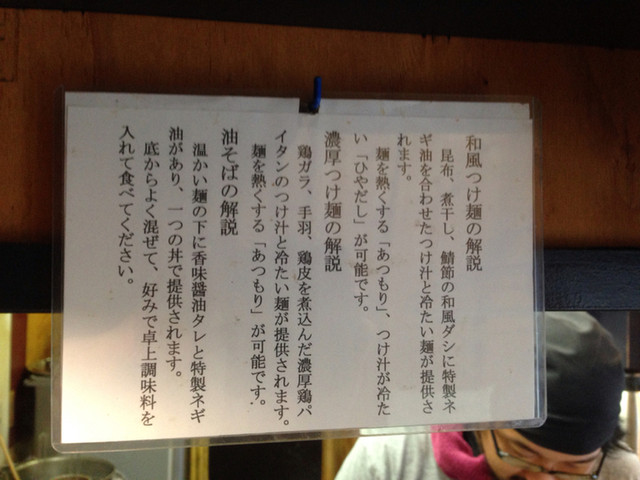 和風つけ麺の解説
昆布、煮干し、鯖節の和風ダシに特製ネ
ギ油を合わせたつけ汁と冷たい麺が提供さ
れます。
麺を熱くする「あつもり」、つけ汁が冷た
い「ひやだし」が可能です。
濃厚つけ麺の解説
鶏ガラ、手羽、鶏皮を煮込んだ濃厚鶏パ
イタンのつけ汁と冷たい麺が提供されます。
麺を熱くする「あつもり」が可能です。
油そばの解説
温かい麺の下に香味醤油タレと特製ネギ
油があり、一つの丼で提供されます。
底からよく混ぜて、好みで卓上調味料を
入れて食べてください。